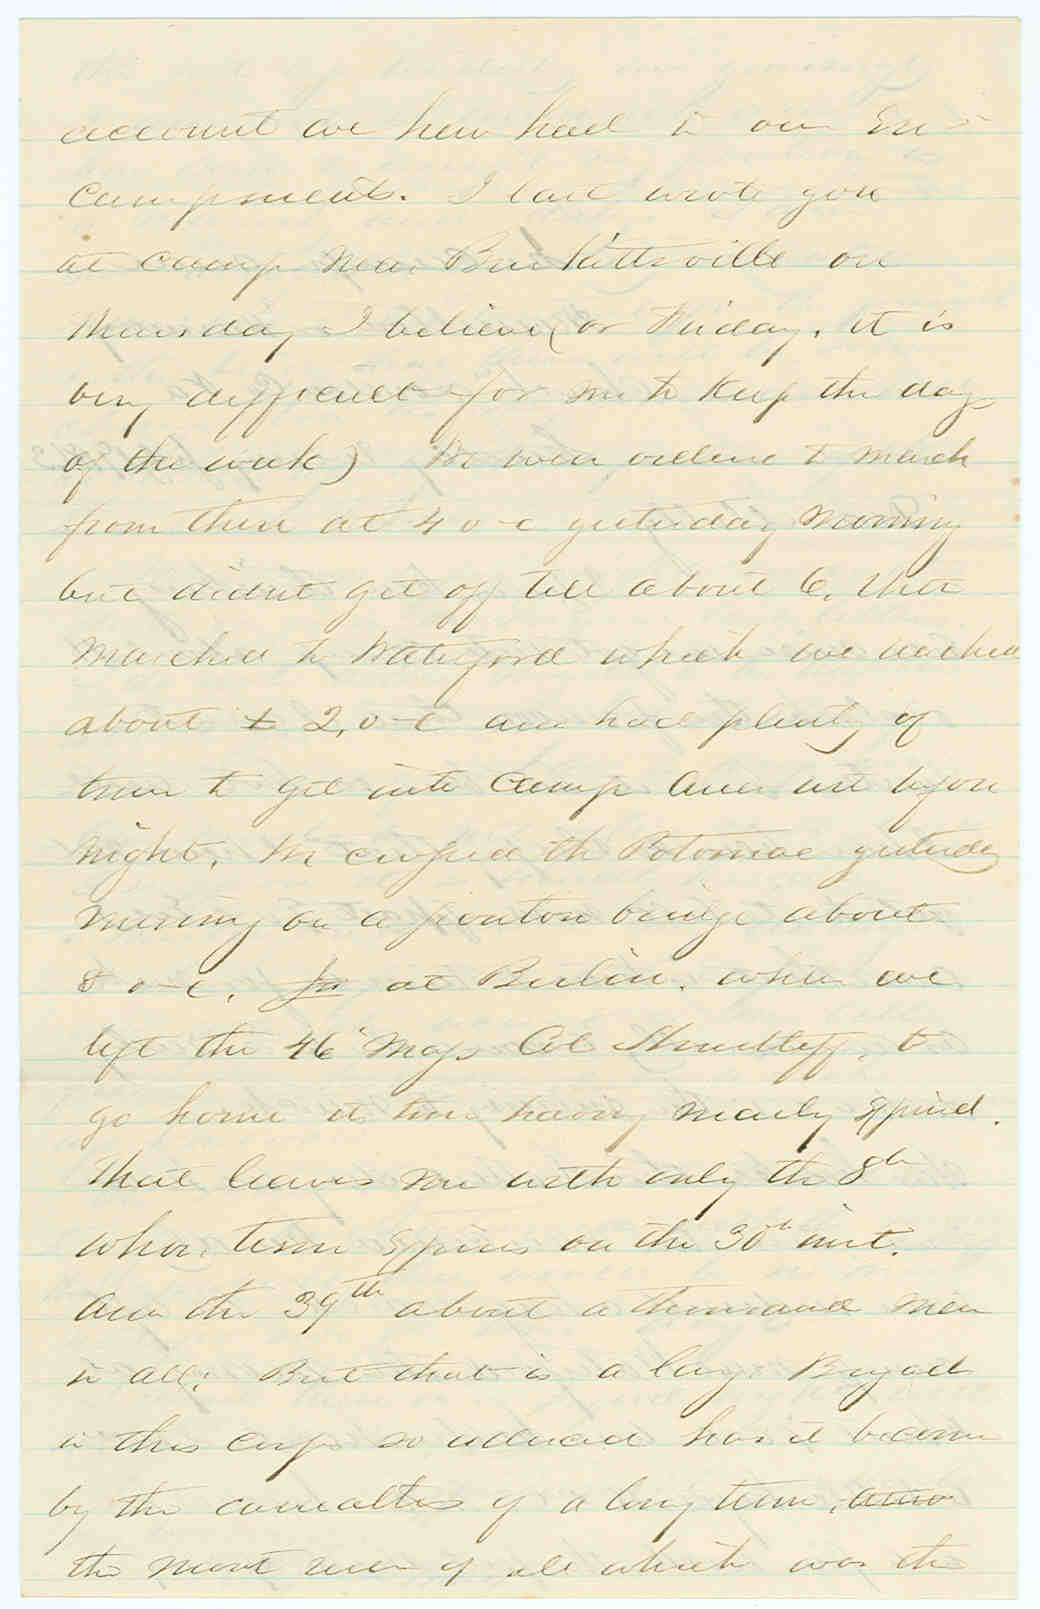 account we have had in our En-
campments. I last wrote you
at camp near Burkittsville on
Thursday I believe (or Friday, it is
very difficult for me to keep the days
of the week) We were ordered to march
from there at 4 o-c yesterday morning
but didnt get off till about 6, then
marched to Waterford which we reached
about 2, o-c and had plenty of
time to get into camp and use before
night. We crossed the Potomac yesterday
morning on a ponton bridge about
8 o-c. at Berlin. where we
left the 46" Mass Col Shurtleff, to
go home its time having nearly expired.
That leaves me with only the 8th
whose term expires on the 30th inst.
and the 39th about a thousand men
in all; But that is a large Brigade
in this corps so reduced has it become
by the casualties of a long term,
the most severe of all which was the